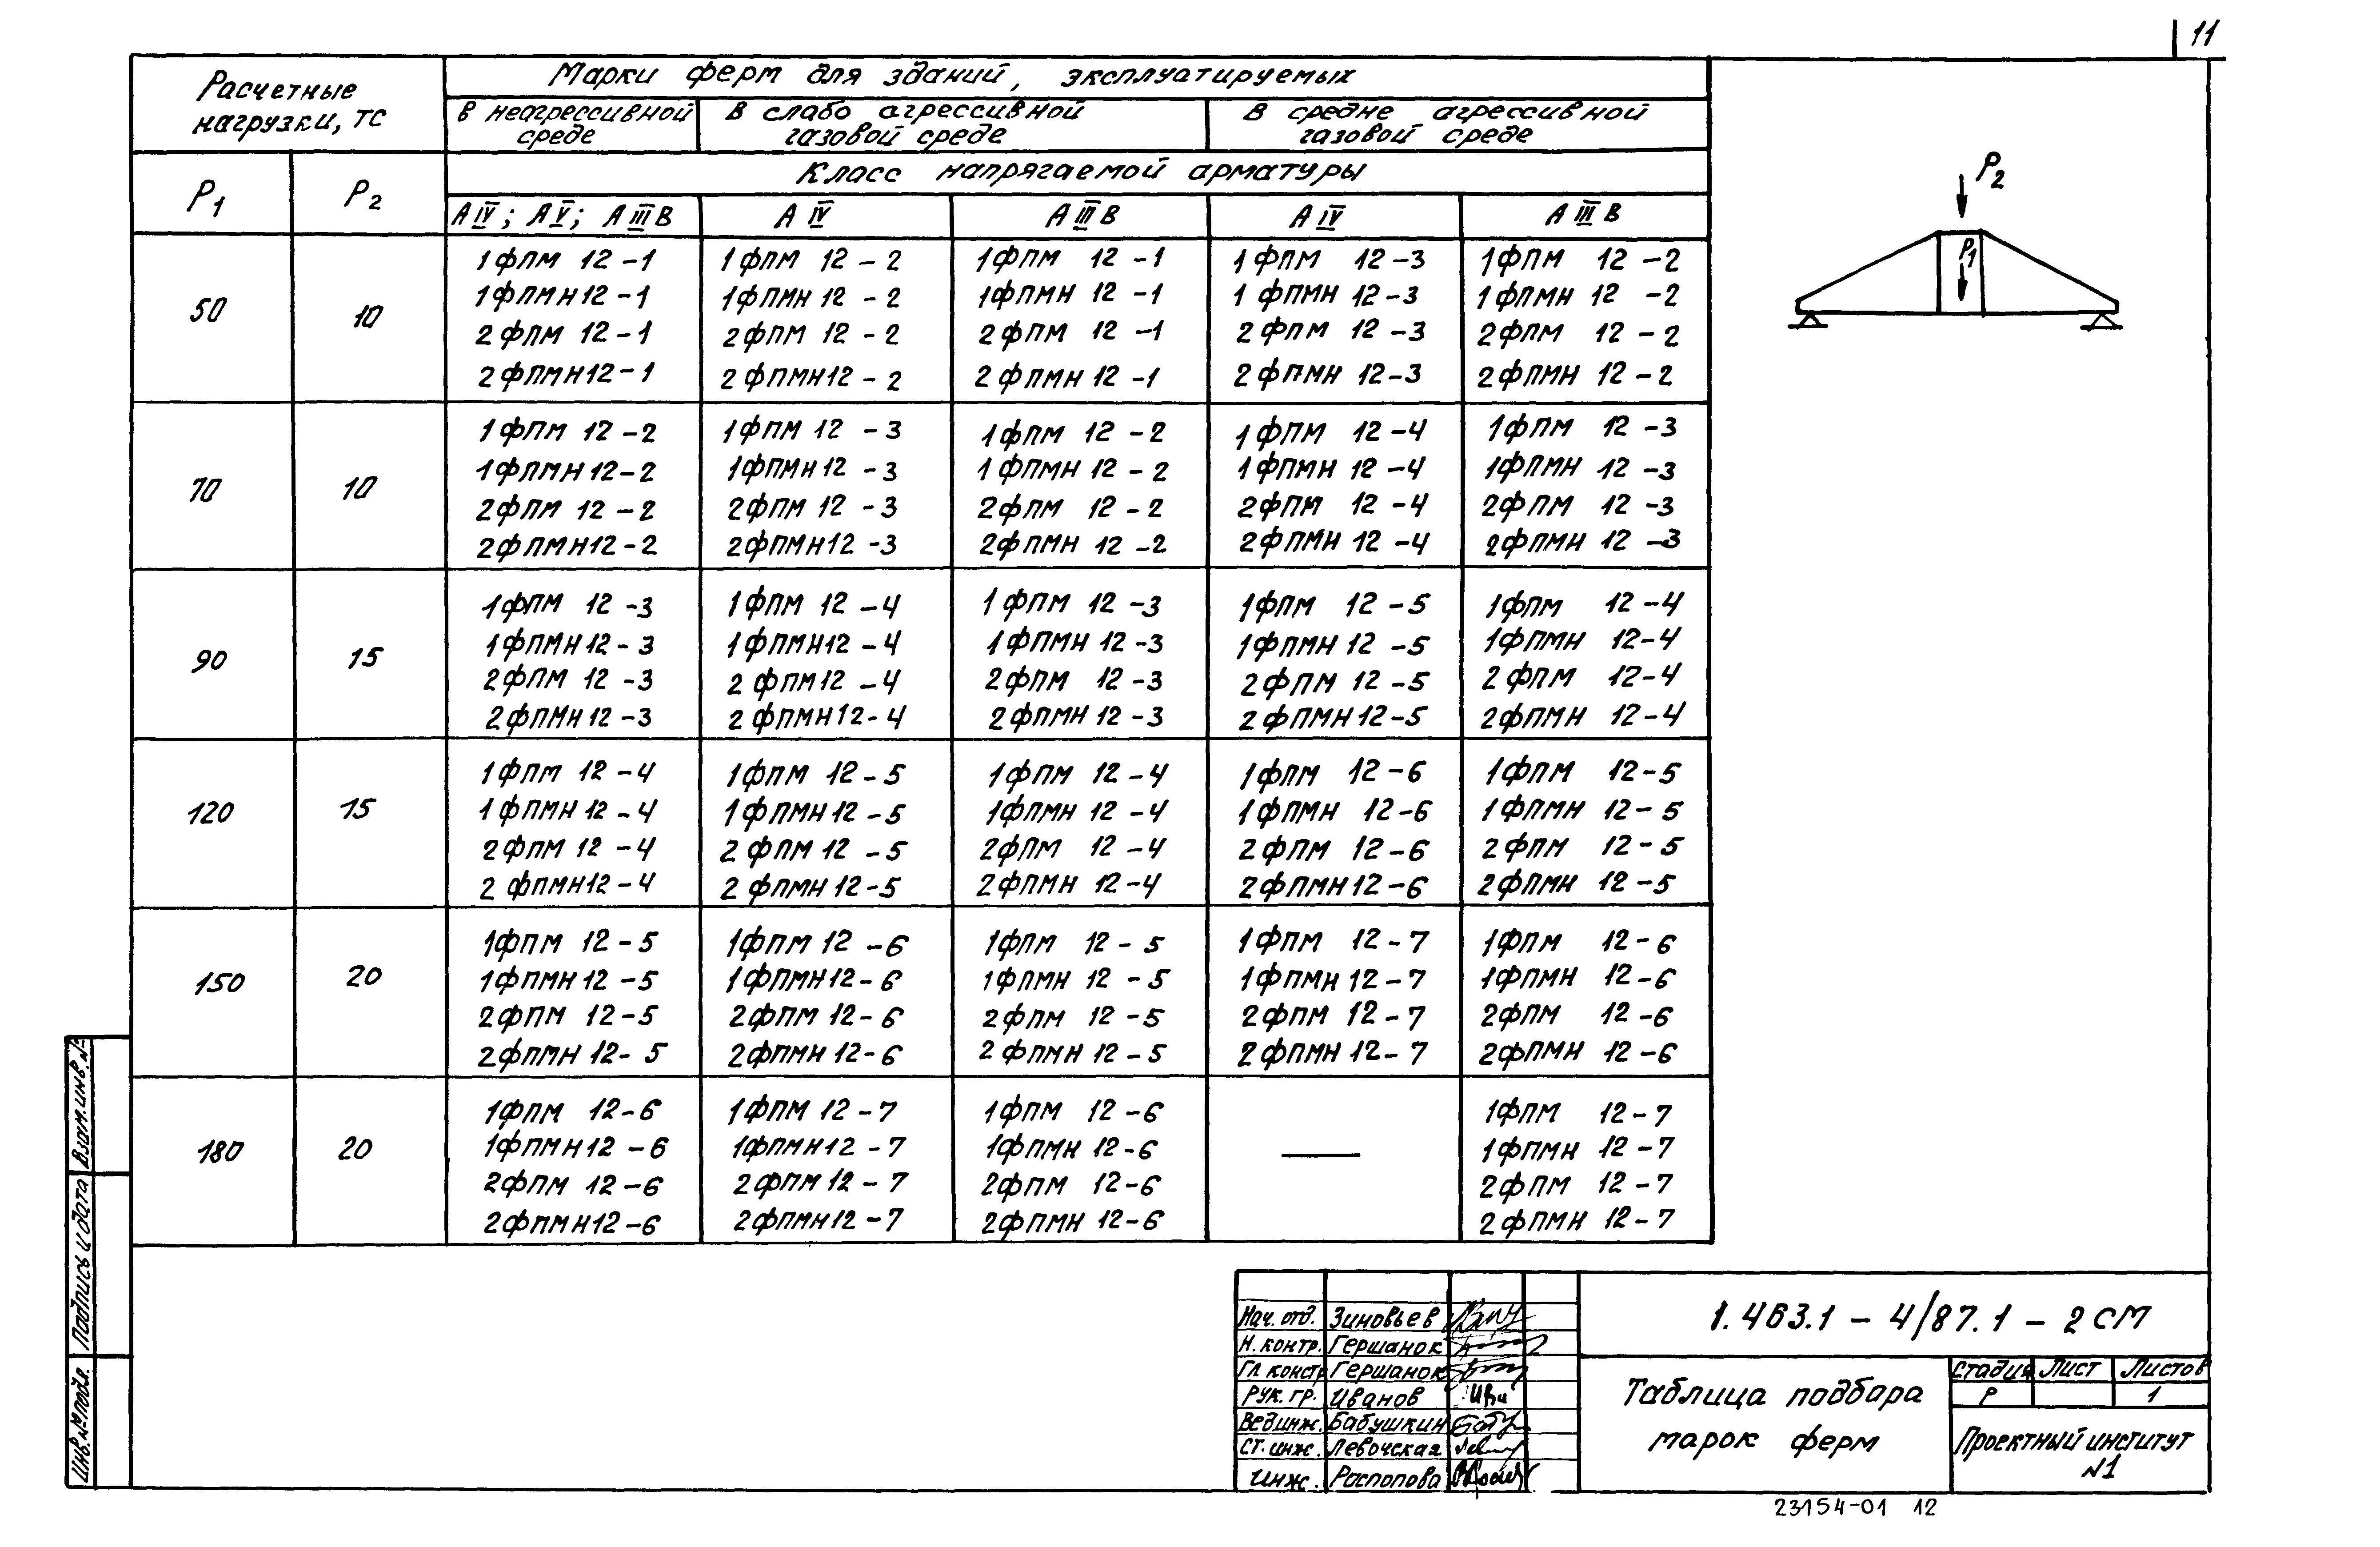 11
Расчетные нагрузки, тс
Марки ферм для зданий, эксплуатируемых
в неагрессивной среде
в слабо агрессивной газовой среде
в средне агрессивной газовой среде
P1
P2
Класс напрягаемой арматуры
А IV; А V; А III В
А IV
А III В
А IV
А III В
50 10
1ФПМ 12-1 1ФПМ 12-2 1ФПМ 12-1 1ФПМ 12-3 1ФПМ 12-2
1ФПМН 12-1 1ФПМН 12-2 1ФПМН 12-1 1ФПМН 12-3 1ФПМН 12-2
2ФПМ 12-1 2ФПМ 12-2 2ФПМ 12-1 2ФПМ 12-3 2ФПМ 12-2
2ФПМН 12-1 2ФПМН 12-2 2ФПМН 12-1 2ФПМН 12-3 2ФПМН 12-2
70 10
1ФПМ 12-2 1ФПМ 12-3 1ФПМ 12-2 1ФПМ 12-4 1ФПМ 12-3
1ФПМН 12-2 1ФПМН 12-3 1ФПМН 12-2 1ФПМН 12-4 1ФПМН 12-3
2ФПМ 12-2 2ФПМ 12-3 2ФПМ 12-2 2ФПМ 12-4 2ФПМ 12-3
2ФПМН 12-2 2ФПМН 12-3 2ФПМН 12-2 2ФПМН 12-4 2ФПМН 12-3
90 15
1ФПМ 12-3 1ФПМ 12-4 1ФПМ 12-3 1ФПМ 12-5 1ФПМ 12-4
1ФПМН 12-3 1ФПМН 12-4 1ФПМН 12-3 1ФПМН 12-5 1ФПМН 12-4
2ФПМ 12-3 2ФПМ 12-4 2ФПМ 12-3 2ФПМ 12-5 2ФПМ 12-4
2ФПМН 12-3 2ФПМН 12-4 2ФПМН 12-3 2ФПМН 12-5 2ФПМН 12-4
120 15
1ФПМ 12-4 1ФПМ 12-5 1ФПМ 12-4 1ФПМ 12-6 1ФПМ 12-5
1ФПМН 12-4 1ФПМН 12-5 1ФПМН 12-4 1ФПМН 12-6 1ФПМН 12-5
2ФПМ 12-4 2ФПМ 12-5 2ФПМ 12-4 2ФПМ 12-6 2ФПМ 12-5
2ФПМН 12-4 2ФПМН 12-5 2ФПМН 12-4 2ФПМН 12-6 2ФПМН 12-5
150 20
1ФПМ 12-5 1ФПМ 12-6 1ФПМ 12-5 1ФПМ 12-7 1ФПМ 12-6
1ФПМН 12-5 1ФПМН 12-6 1ФПМН 12-5 1ФПМН 12-7 1ФПМН 12-6
2ФПМ 12-5 2ФПМ 12-6 2ФПМ 12-5 2ФПМ 12-7 2ФПМ 12-6
2ФПМН 12-5 2ФПМН 12-6 2ФПМН 12-5 2ФПМН 12-7 2ФПМН 12-6
180 20
1ФПМ 12-6 1ФПМ 12-7 1ФПМ 12-6 — 1ФПМ 12-7
1ФПМН 12-6 1ФПМН 12-7 1ФПМН 12-6 1ФПМН 12-7
2ФПМ 12-6 2ФПМ 12-7 2ФПМ 12-6 2ФПМ 12-7
2ФПМН 12-6 2ФПМН 12-7 2ФПМН 12-6 2ФПМН 12-7
P2
P1
Взам.инв.№
Подпись и дата
Инв.№подл.
Нач. отд. Зиновьев
Н. контр. Гершанок
Гл констр Гершанок
Рук. гр. Иванов
Вед инж. Бабушкин
Ст. инж. Левочская
Инж. Распопова
1.463.1 - 4/87.1 - 2 СМ
Таблица подбора
марок ферм
Стадия Лист Листов
Р 1
Проектный институт
№1
23154-01 12